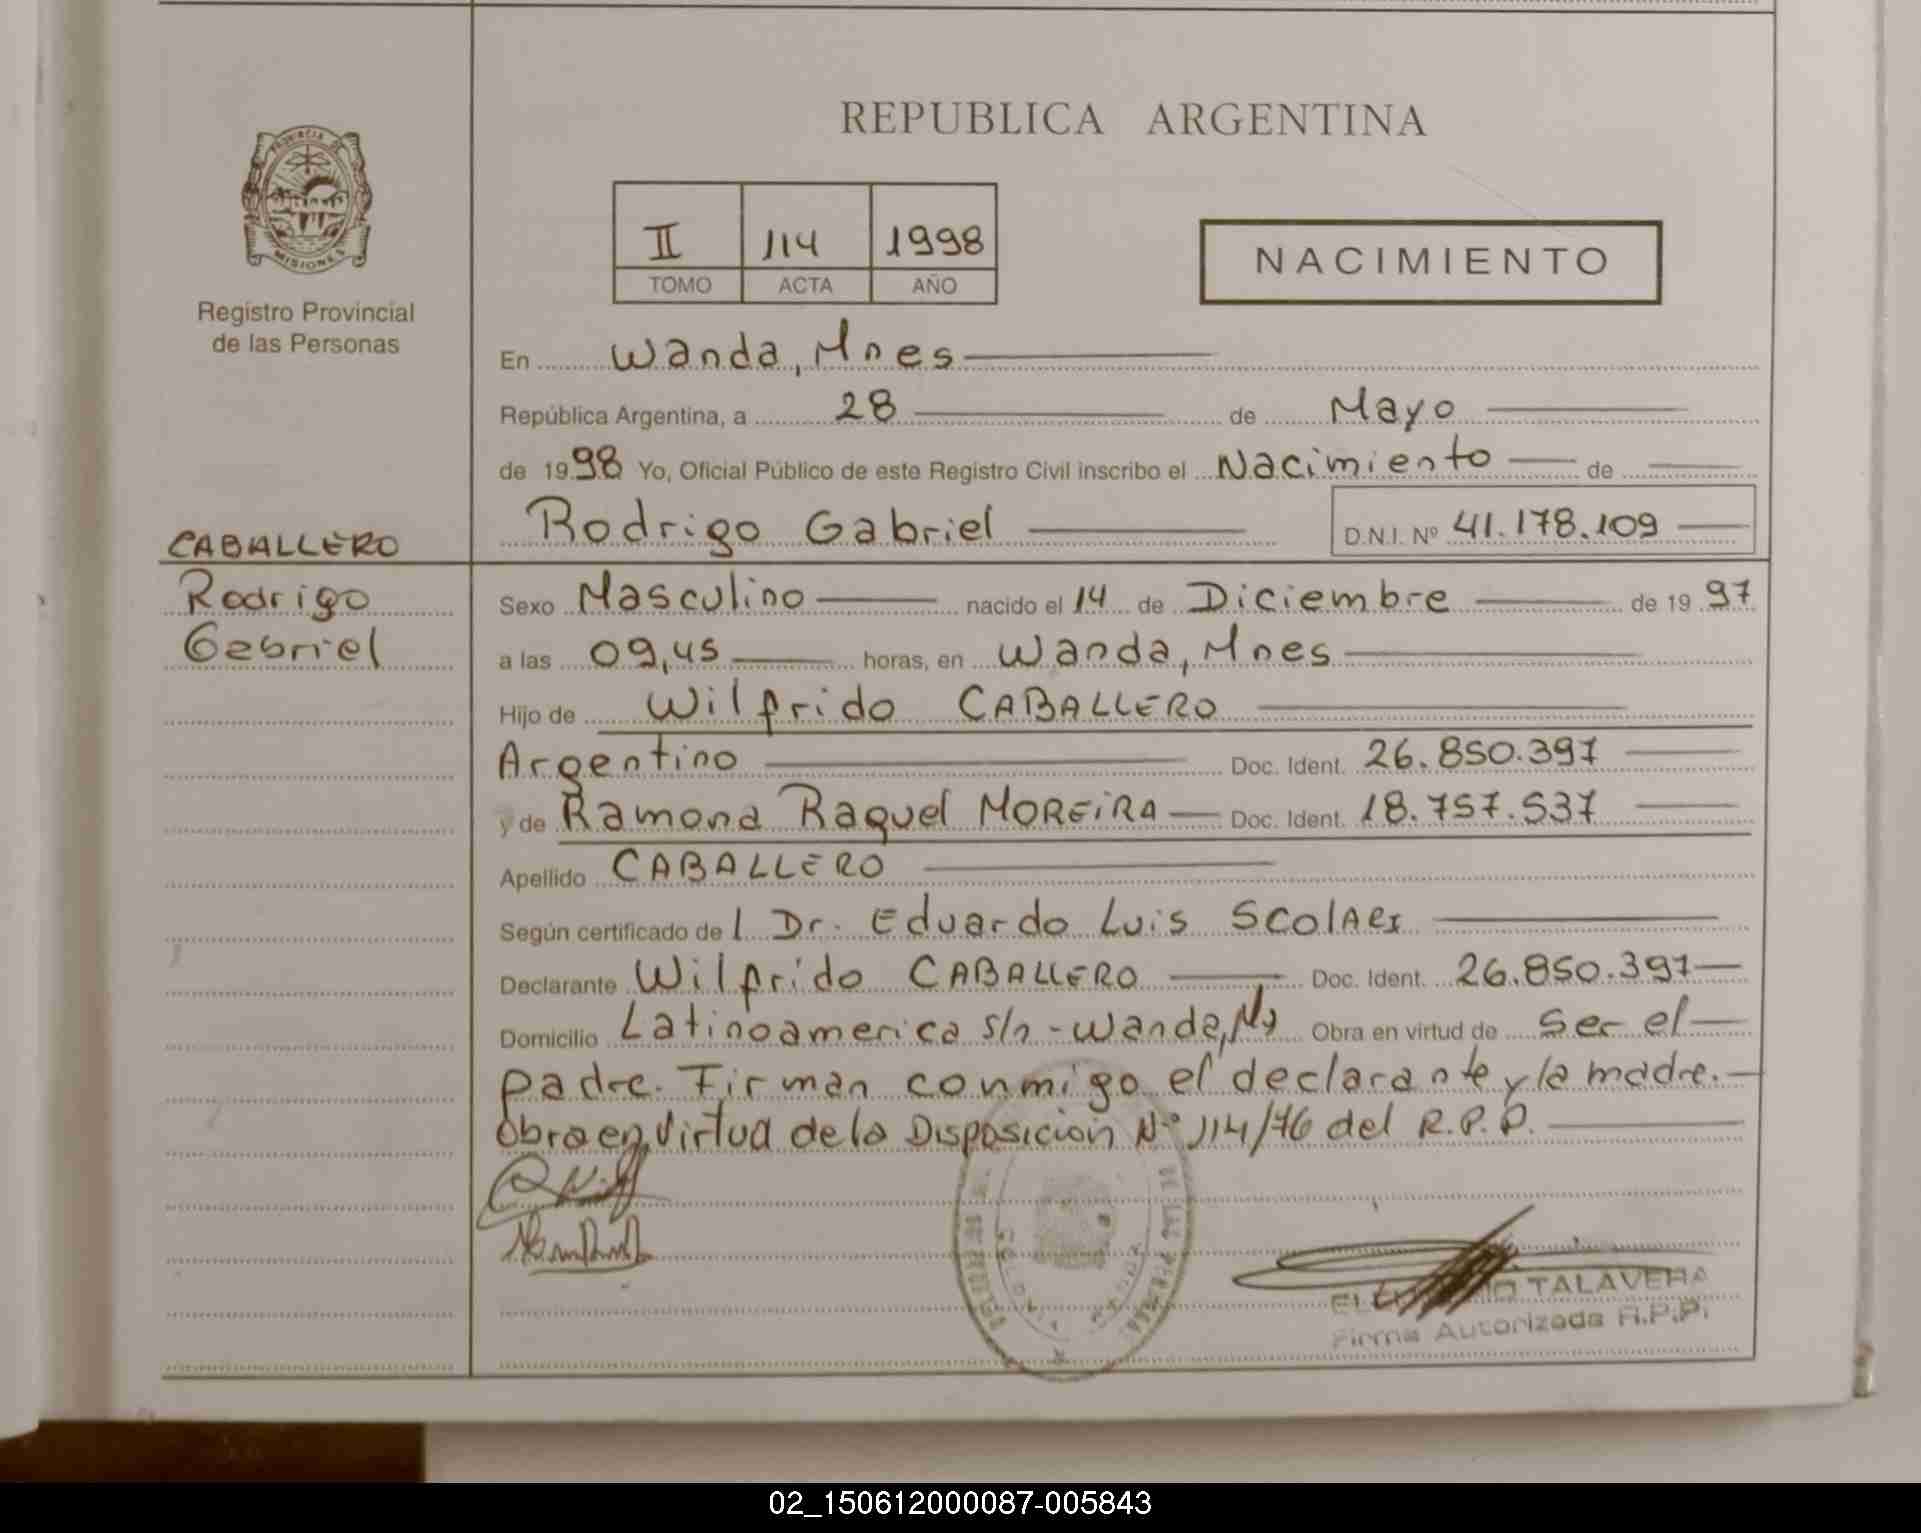 REPUBLICA ARGENTINA
PROVINCIA DE MISIONES
Registro Provincial
de las Personas
II 114 1998
TOMO ACTA AÑO
NACIMIENTO
En Wanda, Mnes
República Argentina, a 28 de Mayo
de 1998 Yo, Oficial Público de este Registro Civil inscribo el Nacimiento de
Rodrigo Gabriel D.N.I. Nº 41.178.109
CABALLERO
Rodrigo
Gabriel
Sexo Masculino nacido el 14 de Diciembre de 1997
a las 09,45 horas, en Wanda, Mnes
Hijo de Wilfrido CABALLERO
Argentino Doc. Ident. 26.850.397
y de Ramona Raquel MOREIRA Doc. Ident. 18.757.537
Apellido CABALLERO
Según certificado de l Dr. Eduardo Luis SCOLARI
Declarante Wilfrido CABALLERO Doc. Ident. 26.850.397
Domicilio Latinoamerica s/n - Wanda, Ms Obra en virtud de ser el
padre. Firman conmigo el declarante y la madre.
Obra en virtud de la Disposicion Nº 114/76 del R.P.P.
DE LAS
TALAVERA
Firma Autorizada R.P.P.
02_150612000087-005843